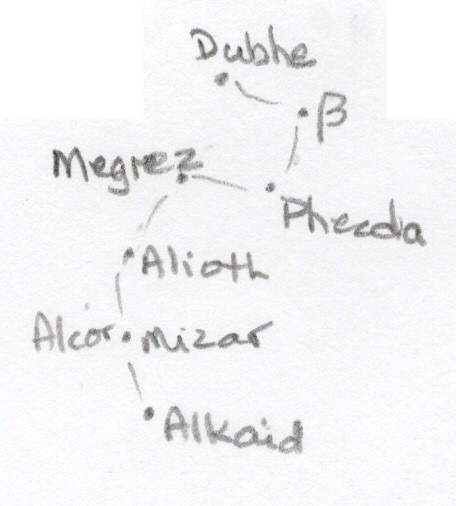 Dubhe
β
Megrez
Phecda
Alioth
Alcor Mizar
Alkaid